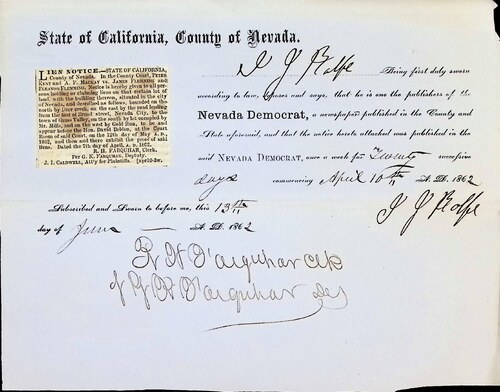 State of California, County of Nevada.
LIEN NOTICE.—STATE OF CALIFORNIA,
County of Nevada. In the County Court, PETER
KENT and A. P. MACKAY vs. JAMES FLEMMING and
Notice is hereby given to all per-
sons having or claiming liens on that certain lot of
land, with the building thereon, situated in the city
of Nevada, and described as follows, bounded on the
north by Deer creek, on the east by the road leading
from the foot of Broad street, Nevada City, to the
town of Grass Valley, on the south by lot occupied by
Mr. Mills, and on the west by Gold Run, to be and
appear before the Hon. David Belden, at the Court
Room of said Court, on the 12th day of May A. D.,
1862, and then and there exhibit the proof of said
liens. Dated the 7th day of April, A. D. 1862.
R. H. FARQUHAR, Clerk.
Per G. K. FARQUHAR, Deputy.
J. I. CALDWELL, Att'y for Plaintiffs.
I J Rolfe Being first duty sworn
according to law, deposes and says, that he is one the publishers of the
Nevada Democrat, a newspaper published in the County and
State aforesaid, and that the notice hereto attached was published in the
said NEVADA DEMOCRAT, once a week for Twenty successive
days commencing April 10th A. D. 1862
Subscribed and Sworn to before me, this 13th
I J Rolfe
day of June A. D. 1862
R H Farquhar Clk
Farquhar